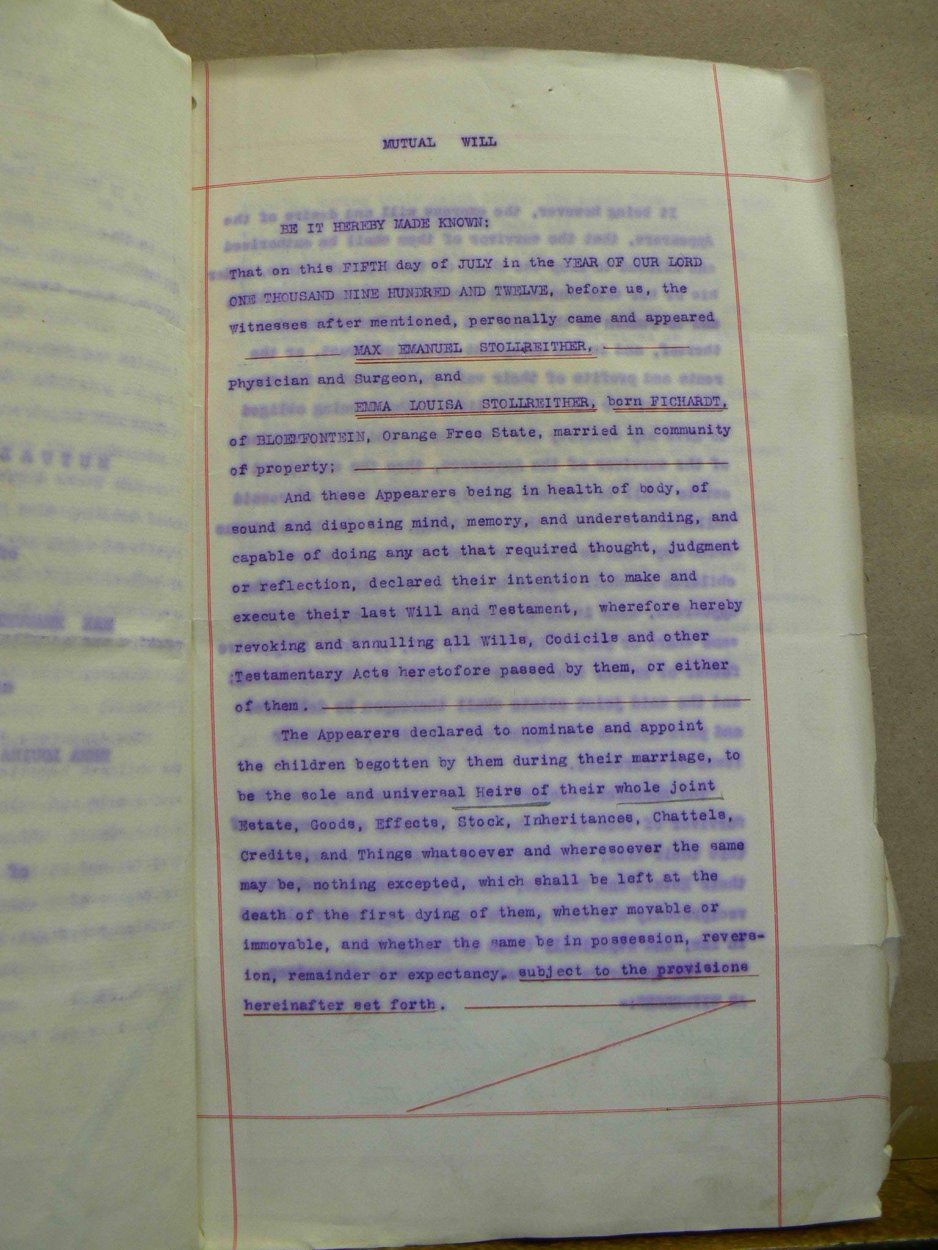 MUTUAL WILL
BE IT HEREBY MADE KNOWN:
That on this FIFTH day of JULY in the YEAR OF OUR LORD
ONE THOUSAND NINE HUNDRED AND TWELVE, before us, the
witnesses after mentioned, personally came and appeared
MAX EMANUEL STOLLREITHER,
physician and Surgeon, and
EMMA LOUISA STOLLREITHER, born FICHARDT,
of BLOEMFONTEIN, Orange Free State, married in community
of property;
And these Appearers being in health of body, of
sound and disposing mind, memory, and understanding, and
capable of doing any act that required thought, judgment
or reflection, declared their intention to make and
execute their last Will and Testament, wherefore hereby
revoking and annulling all Wills, Codicils and other
Testamentary Acts heretofore passed by them, or either
of them.
The Appearers declared to nominate and appoint
the children begotten by them during their marriage, to
be the sole and universal Heirs of their whole joint
Estate, Goods, Effects, Stock, Inheritances, Chattels,
Credits, and Things whatsoever and wheresoever the same
may be, nothing excepted, which shall be left at the
death of the first dying of them, whether movable or
immovable, and whether the same be in possession, revers-
ion, remainder or expectancy, subject to the provisions
hereinafter set forth.